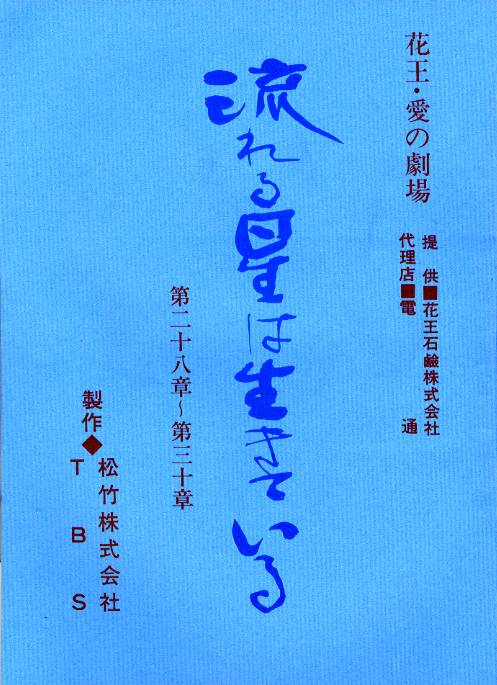 花王・愛の劇場
提供■花王石鹸株式会社
代理店■電通
流れる星は生きている
第二十八章～第三十章
製作◆松竹株式会社
TBS